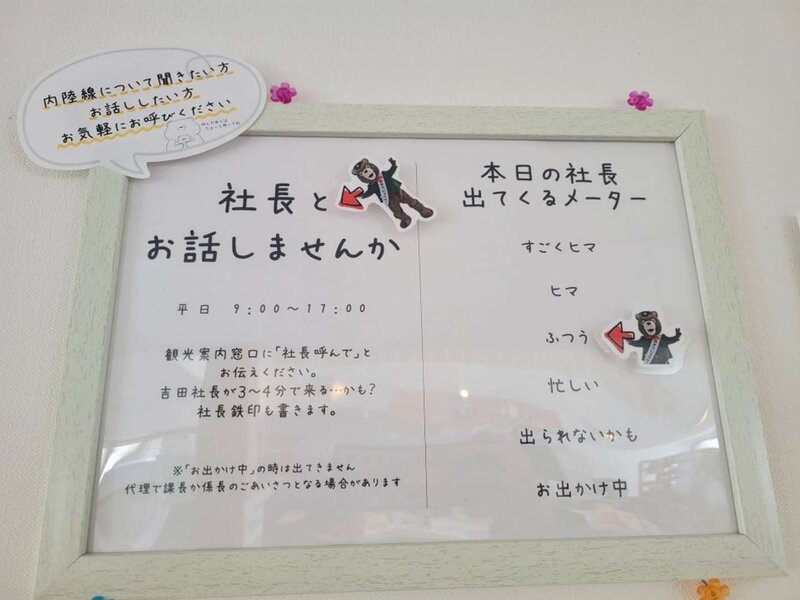 内陸線について聞きたい方
お話ししたい方
お気軽にお呼びください
社長と
お話しませんか
平日 9:00～17:00
観光案内窓口に「社長呼んで」と
お伝えください。
吉田社長が3～4分で来る…かも?
社長鉄印も書きます。
※「お出かけ中」の時は出てきません
代理で課長か係長のごあいさつとなる場合があります
本日の社長
出てくるメーター
すごくヒマ
ヒマ
ふつう
忙しい
出られないかも
お出かけ中